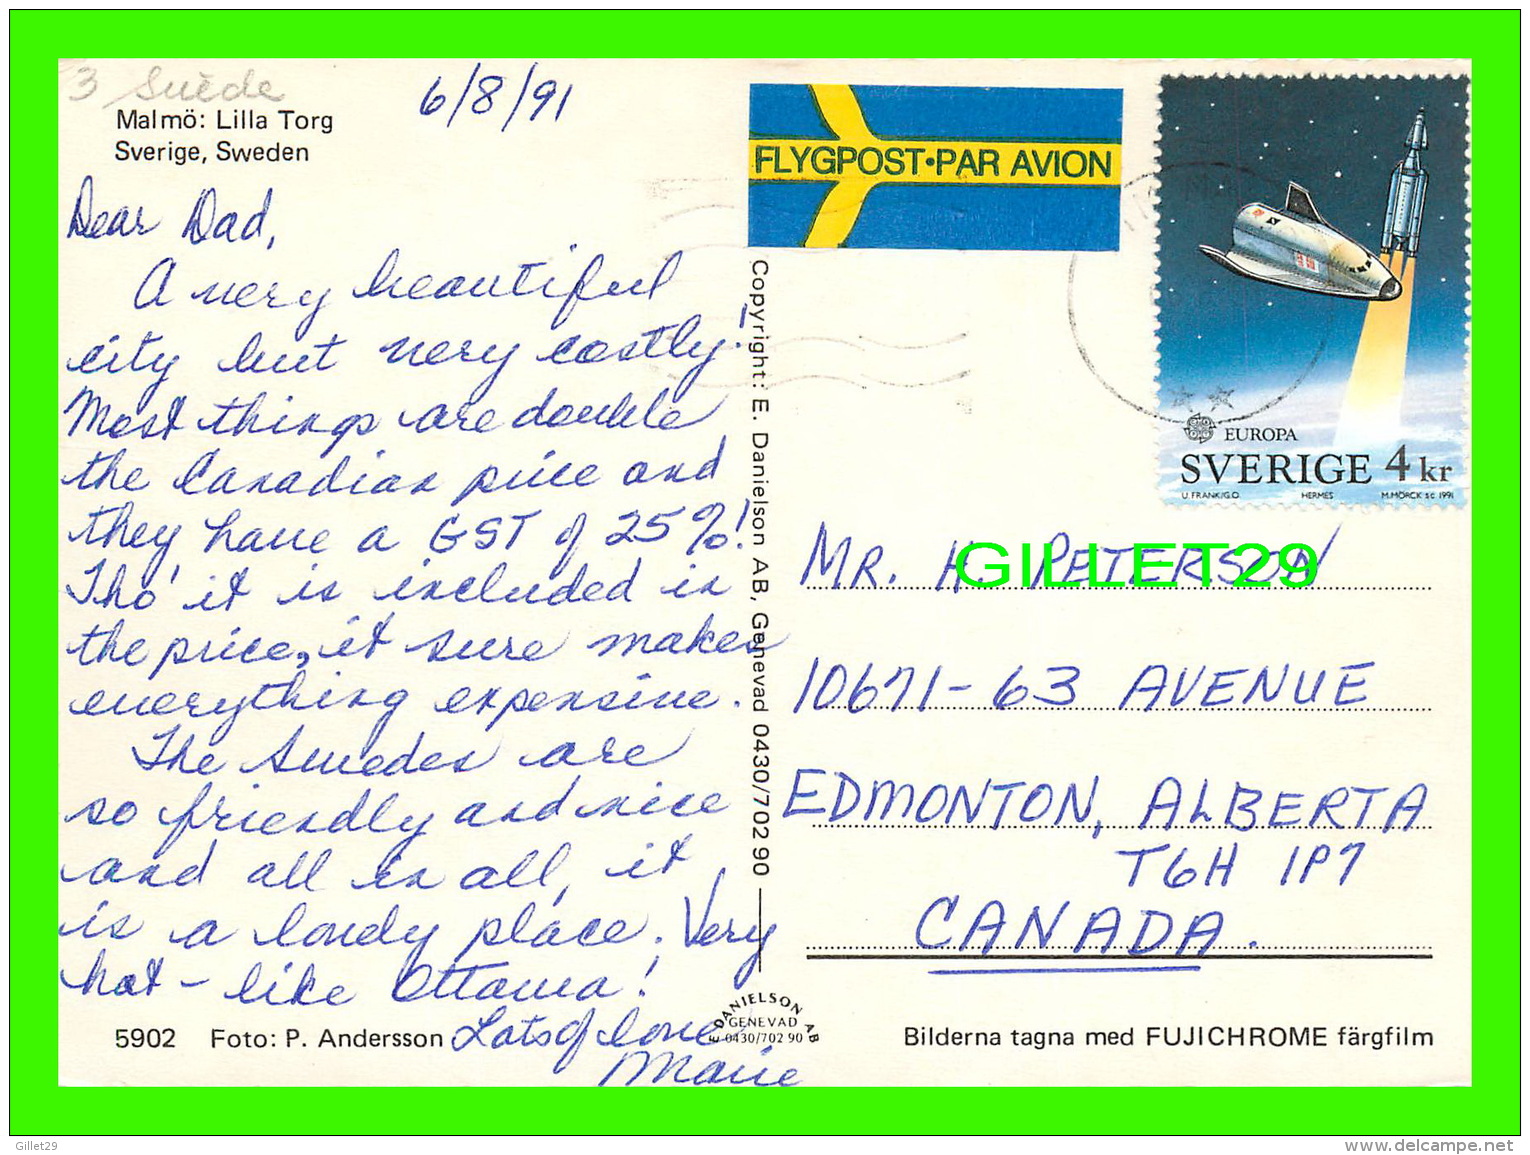 3 Suède
6/8/91
Malmö: Lilla Torg
Sverige, Sweden
Dear Dad,
A very beautiful
city but very costly!
Most things are double
the Canadian price and
they have a GST of 25%!
Tho' it is included in
the price, it sure makes
everything expensive.
The Swedes are
so friendly and nice
and all in all, it
is a lovely place. Very
hot - like Ottawa!
Lots of love
Marie
5902 Foto: P. Andersson
FLYGPOST•PAR AVION
Copyright: E. Danielson AB, Genevad 0430/702 90
E DANIELSON AB
GENEVAD
0430/702 90
EUROPA
SVERIGE 4 kr
U. FRANK/G.O. HERMES M. MÖRCK SC 1991
MR. H PETERSON
GILLET29
10671-63 AVENUE
EDMONTON, ALBERTA
T6H 1P7
CANADA.
Bilderna tagna med FUJICHROME färgfilm
Gillet29
www.delcampe.net